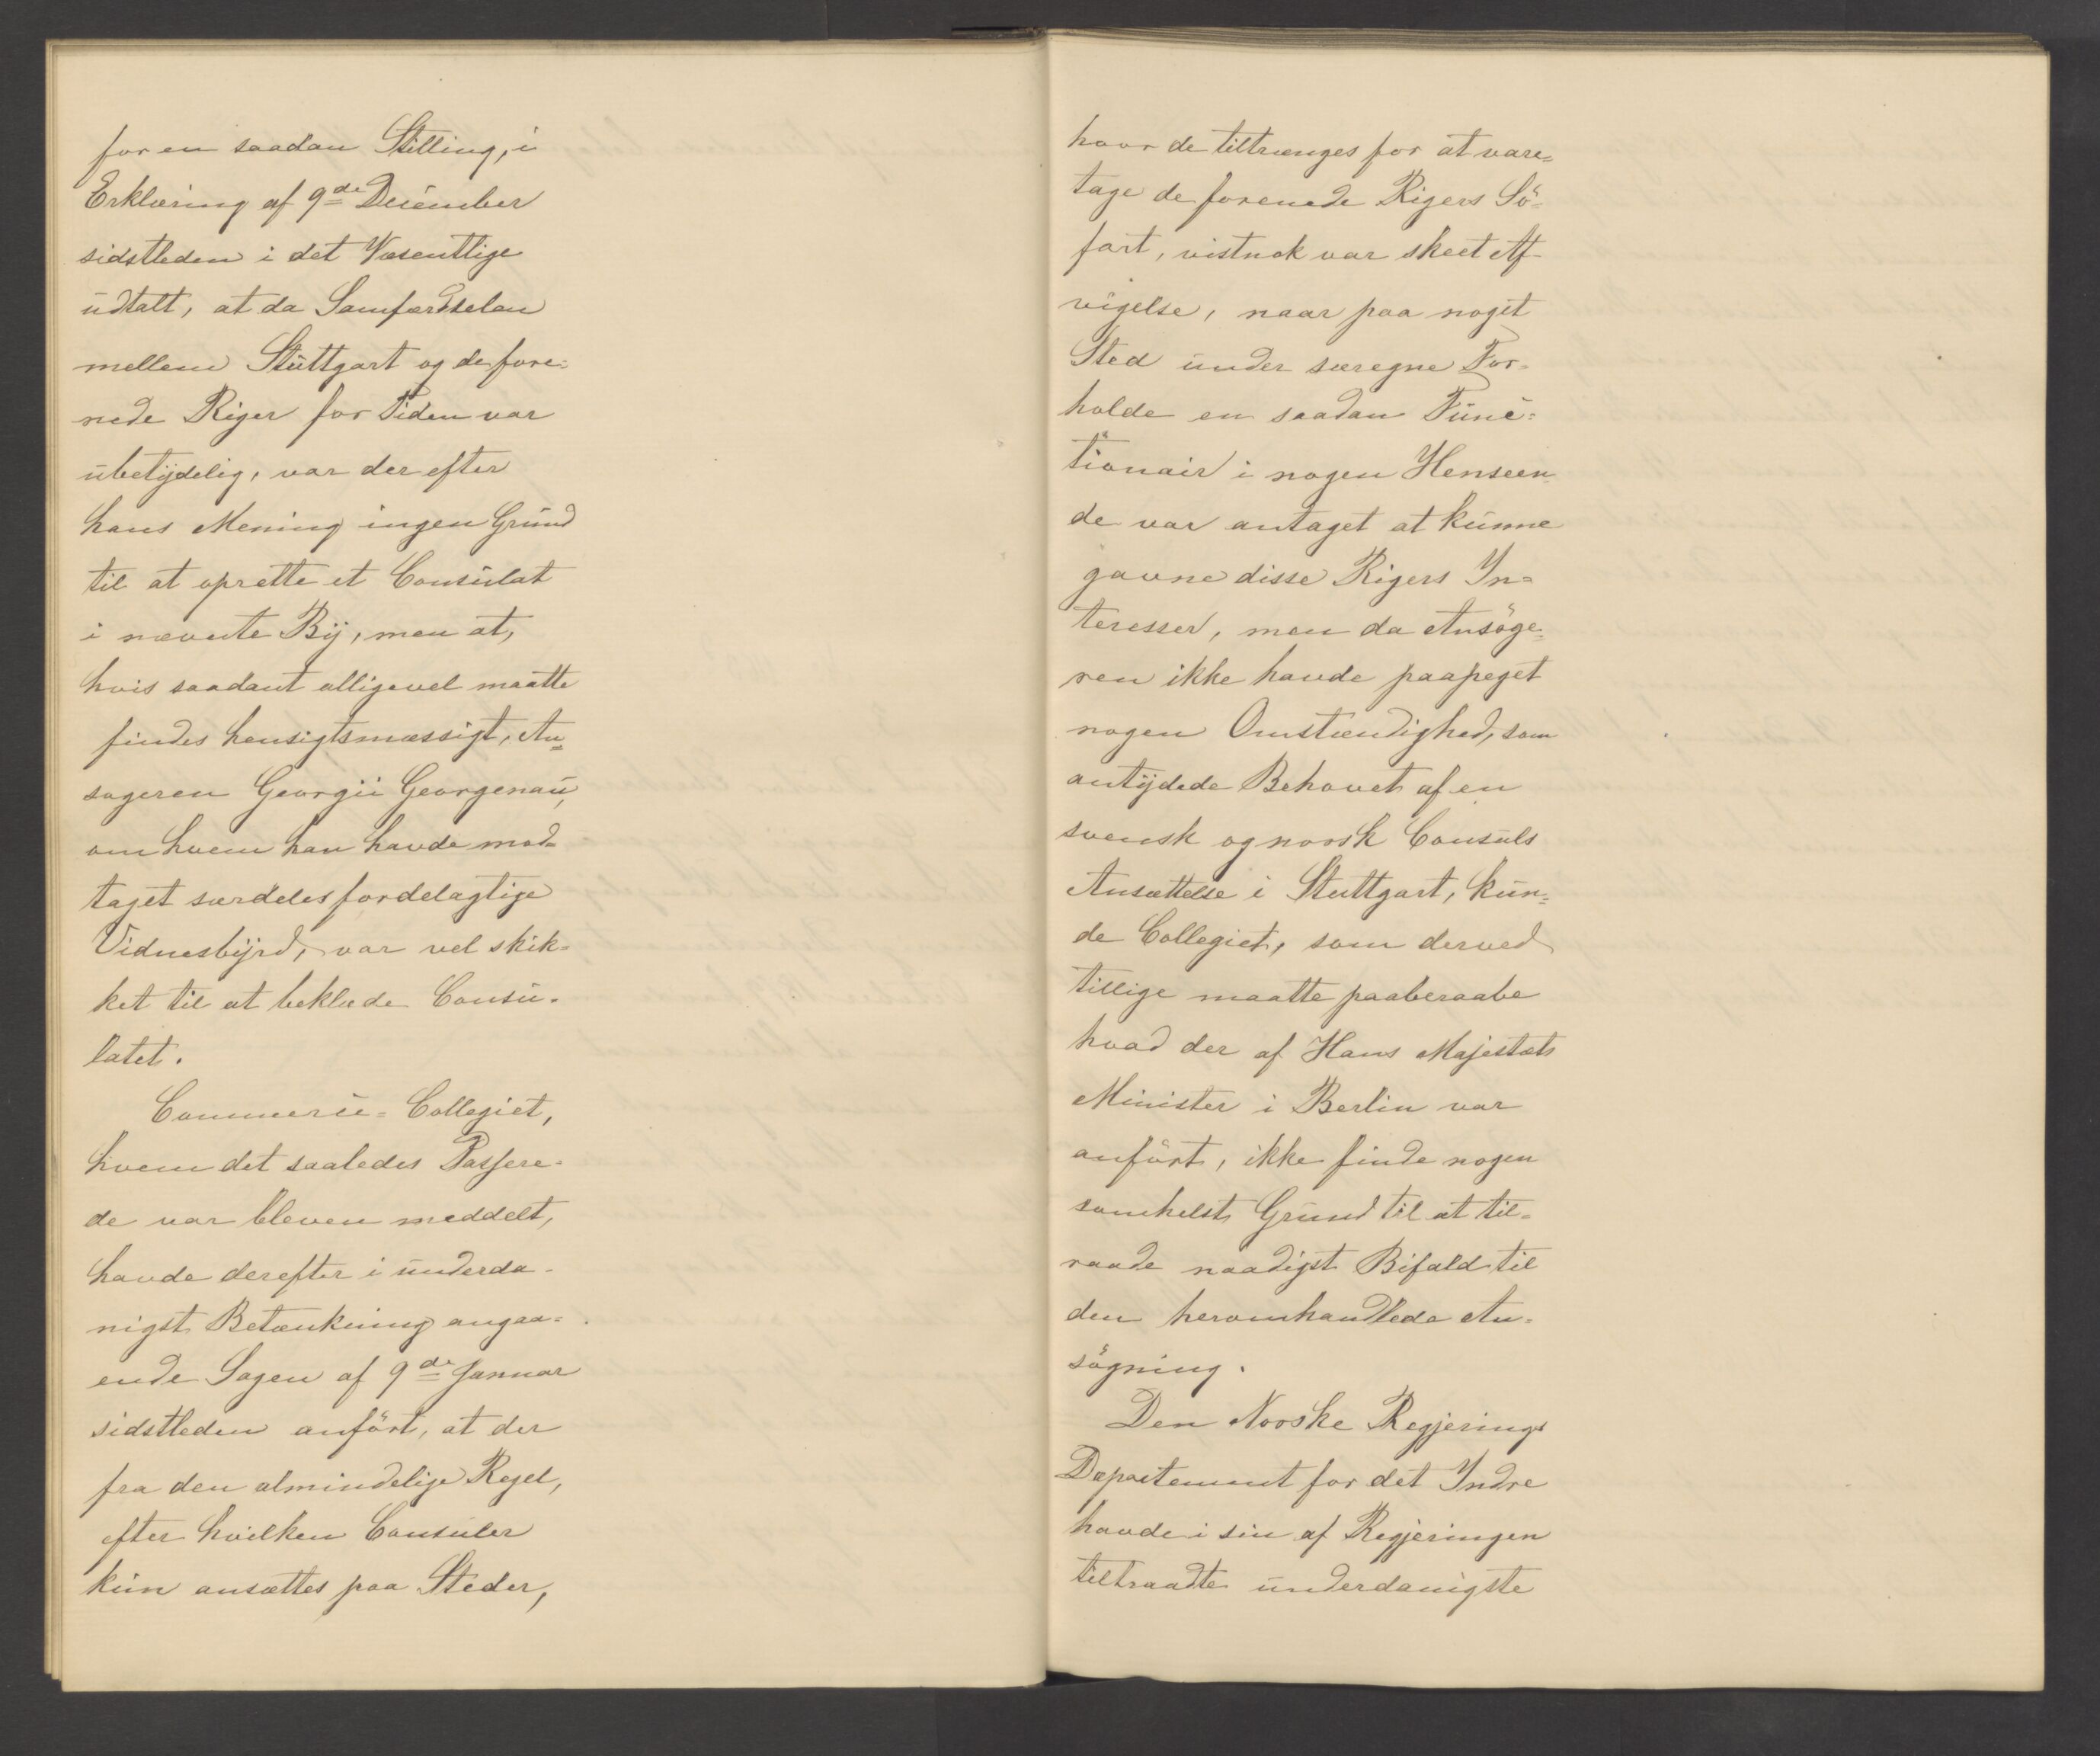 for en saadan Stilling, i
Erklæring af 9de December
sidstleden i det Væsentlige
udtalt, at da Samfærdselen
mellem Stuttgart og de fore-
nede Riger for Tiden var
ubetydelig, var der efter
hans Mening ingen Grund
til at oprette et Consulat
i nævnte By, men at,
hvis saadant alligevel maatte
findes hensigtsmæssigt, An-
sogeren Georgii Georgenau,
om hvem han havde mod-
taget særdeles fordelagtige
Vidnesbyrd, var vel skik-
ket til at beklæde Consu-
latet.
Commerce-Collegiet,
hvem det saaledes Passere-
de var bleven meddelt,
havde derefter i underda-
nigst Betænkning angaa-
ende Sagen af 9de Januar
sidstleden anfört, at der
fra den almindelige Regel,
efter hvilken Consuler
kun ansættes paa Steder,
hvor de tiltrænges for at vare-
tage de forenede Rigers Sö-
fart, vistnok var skeet Af-
vigelse, naar paa noget
Sted under særegne For-
holde en saadan Func-
tionair i nogen Henseen-
de var antaget at kunne
gavne disse Rigers In-
teresser, men da Ansöge-
ren ikke havde paapeget
nogen Omstændighed, som
antydede Behovet af en
svensk og norsk Consuls
Ansættelse i Stuttgart, kun-
de Collegiet, som derved
tillige maatte paaberaabe
hvad der af Hans Majestæts
Minister i Berlin var
anfört, ikke finde nogen
somhelst Grund til at til-
raade naadigst Bifald til
den heromhandlede An-
sögning.
Den Norske Regjerings
Departement for det Indre
havde i sin af Regjeringen
tiltraadte underdanigste